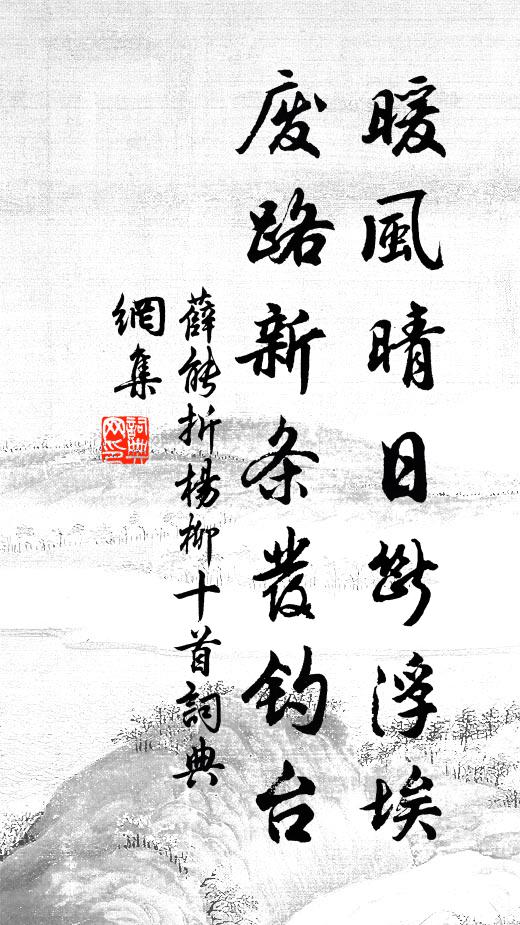 暖風晴日斷浮埃
废路新条發钓台
薛能折楊柳十首詞典
網集
詞典網印